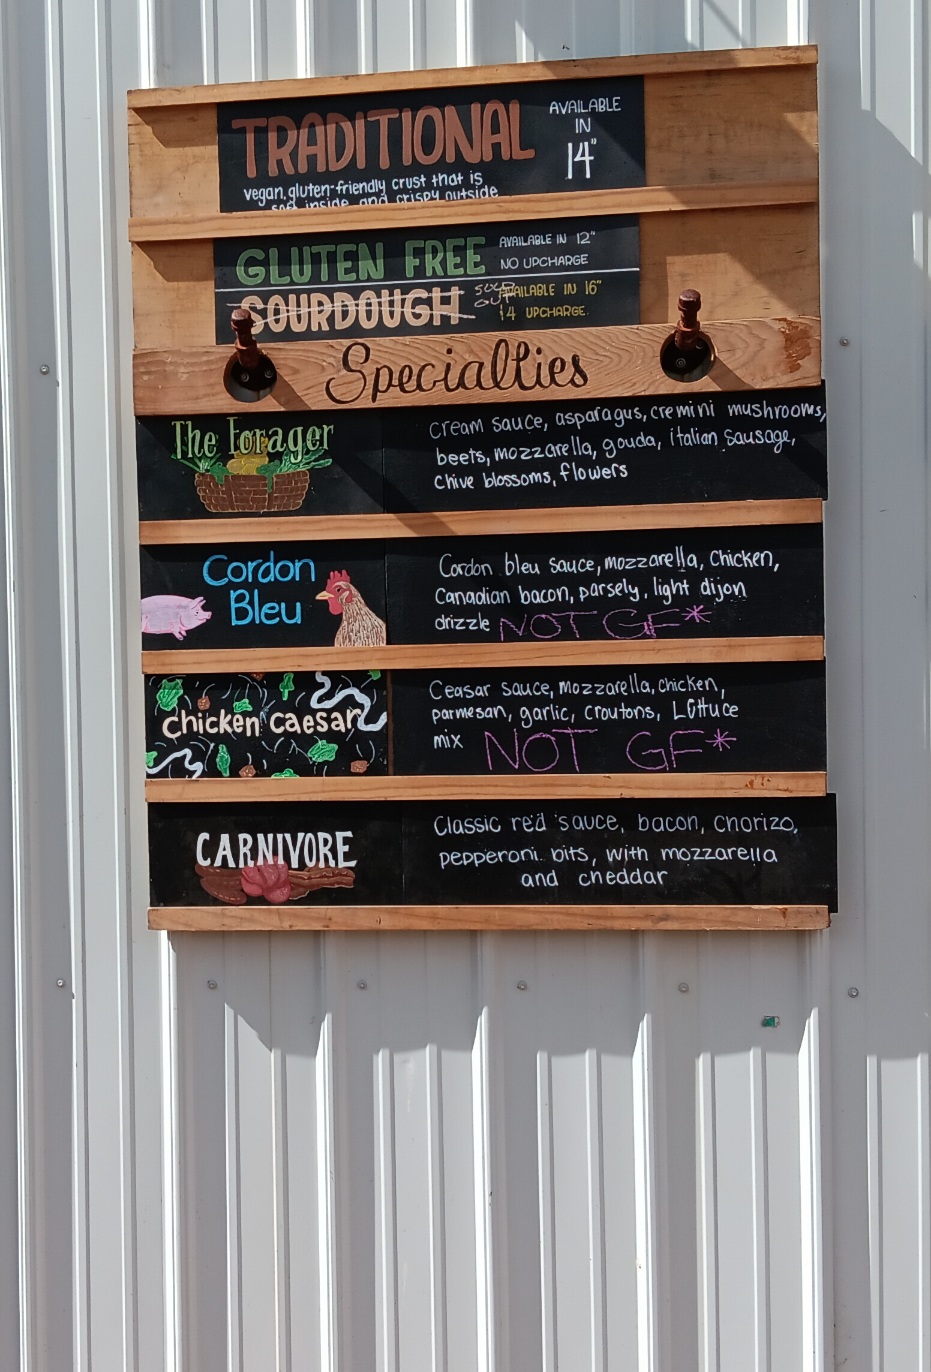 TRADITIONAL
AVAILABLE
IN
14"
vegan, gluten-friendly crust that is
soft inside and crispy outside
GLUTEN FREE
AVAILABLE IN 12"
NO UPCHARGE
SOURDOUGH
SOLD
OUT
AVAILABLE IN 16"
$4 UPCHARGE.
Specialties
The Forager
Cream sauce, asparagus, cremini mushrooms,
beets, mozzarella, gouda, italian sausage,
Chive blossoms, flowers
Cordon
Bleu
Cordon bleu sauce, mozzarella, Chicken,
Canadian bacon, parsely, light dijon
drizzle NOT GF*
chicken caesar
Ceasar sauce, mozzarella, chicken,
parmesan, garlic, croutons, Lettuce
mix NOT GF*
CARNIVORE
Classic red sauce, bacon, chorizo,
pepperoni bits, with mozzarella
and cheddar